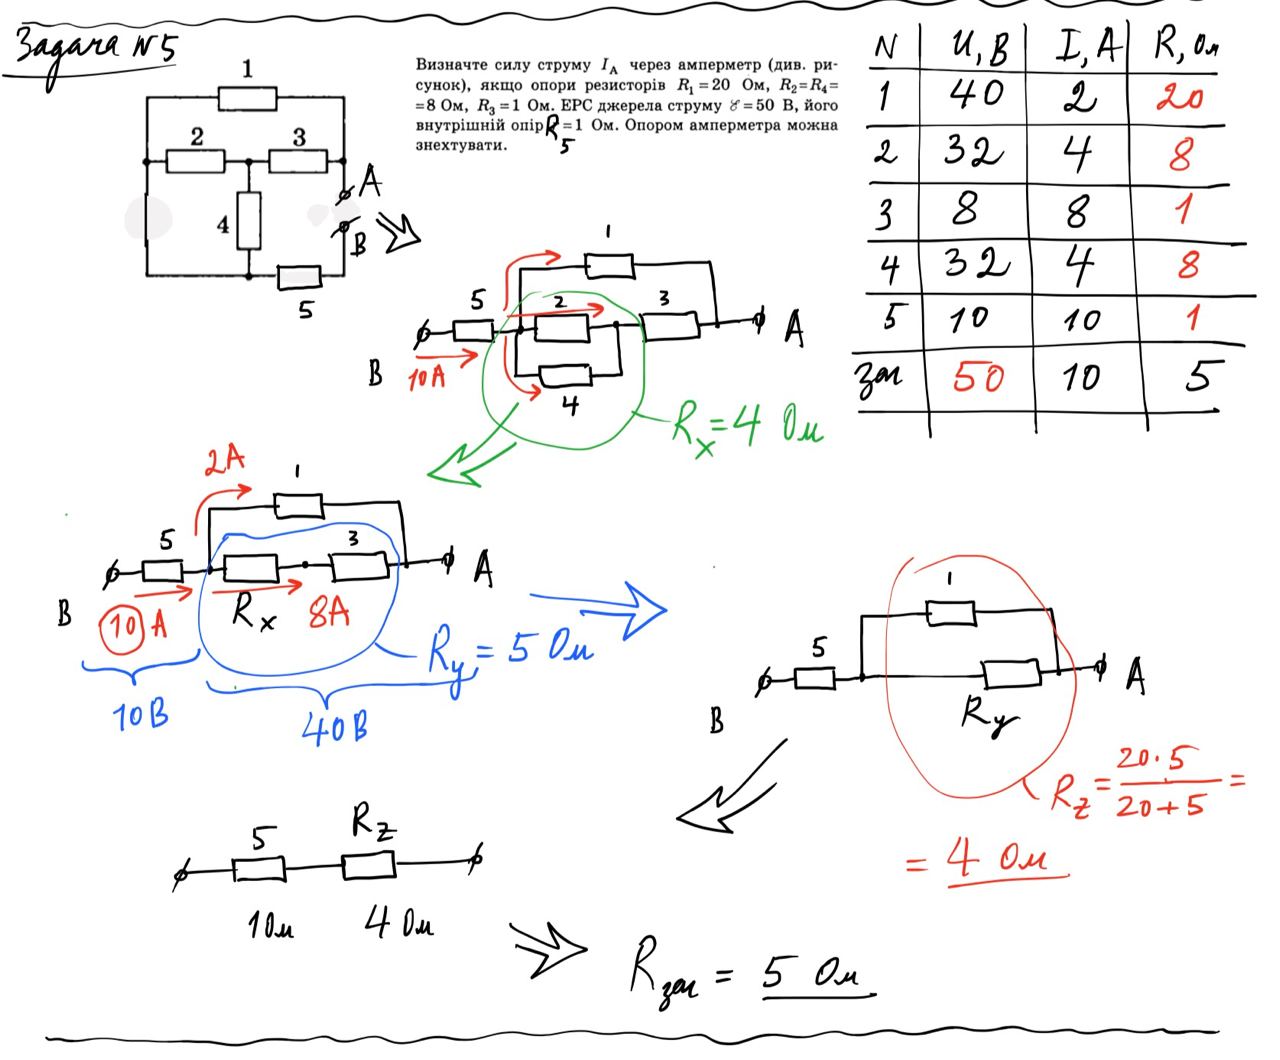 Задача №5
1
2
3
4
5
A
B
Визначте силу струму I_A через амперметр (див. ри-
сунок), якщо опори резисторів R₁=20 Ом, R₂=R₄=
=8 Ом, R₃=1 Ом. ЕРС джерела струму ℰ=50 В, його
внутрішній опір R₅=1 Ом. Опором амперметра можна
знехтувати.
N U, В I, А R, Ом
1 40 2 20
2 32 4 8
3 8 8 1
4 32 4 8
5 10 10 1
Заг 50 10 5
1
5 2 3
4
B A
10A
Rx = 4 Ом
2A
1
5 3
B A
10 A Rx 8A
Ry = 5 Ом
10В
40В
1
5
B A
Ry
Rz = 20·5 / 20+5 =
= 4 Ом
5 Rz
1 Ом 4 Ом
Rзаг = 5 Ом